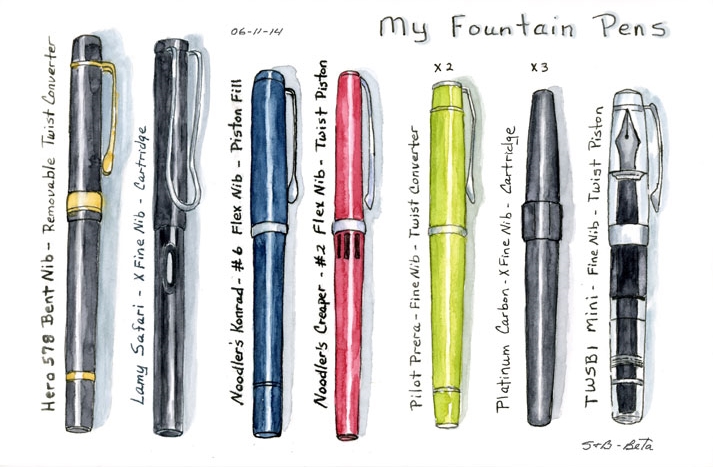 06-11-14
My Fountain Pens
Hero 578 Bent Nib - Removable Twist Converter
Lamy Safari - X Fine Nib - Cartridge
Noodler's Konrad - #6 Flex Nib - Piston Fill
Noodler's Creaper - #2 Flex Nib - Twist Piston
X2
Pilot Prera - Fine Nib - Twist Converter
X3
Platinum Carbon - X Fine Nib - Cartridge
TWSBI Mini - Fine Nib - Twist Piston
S+B - Beta